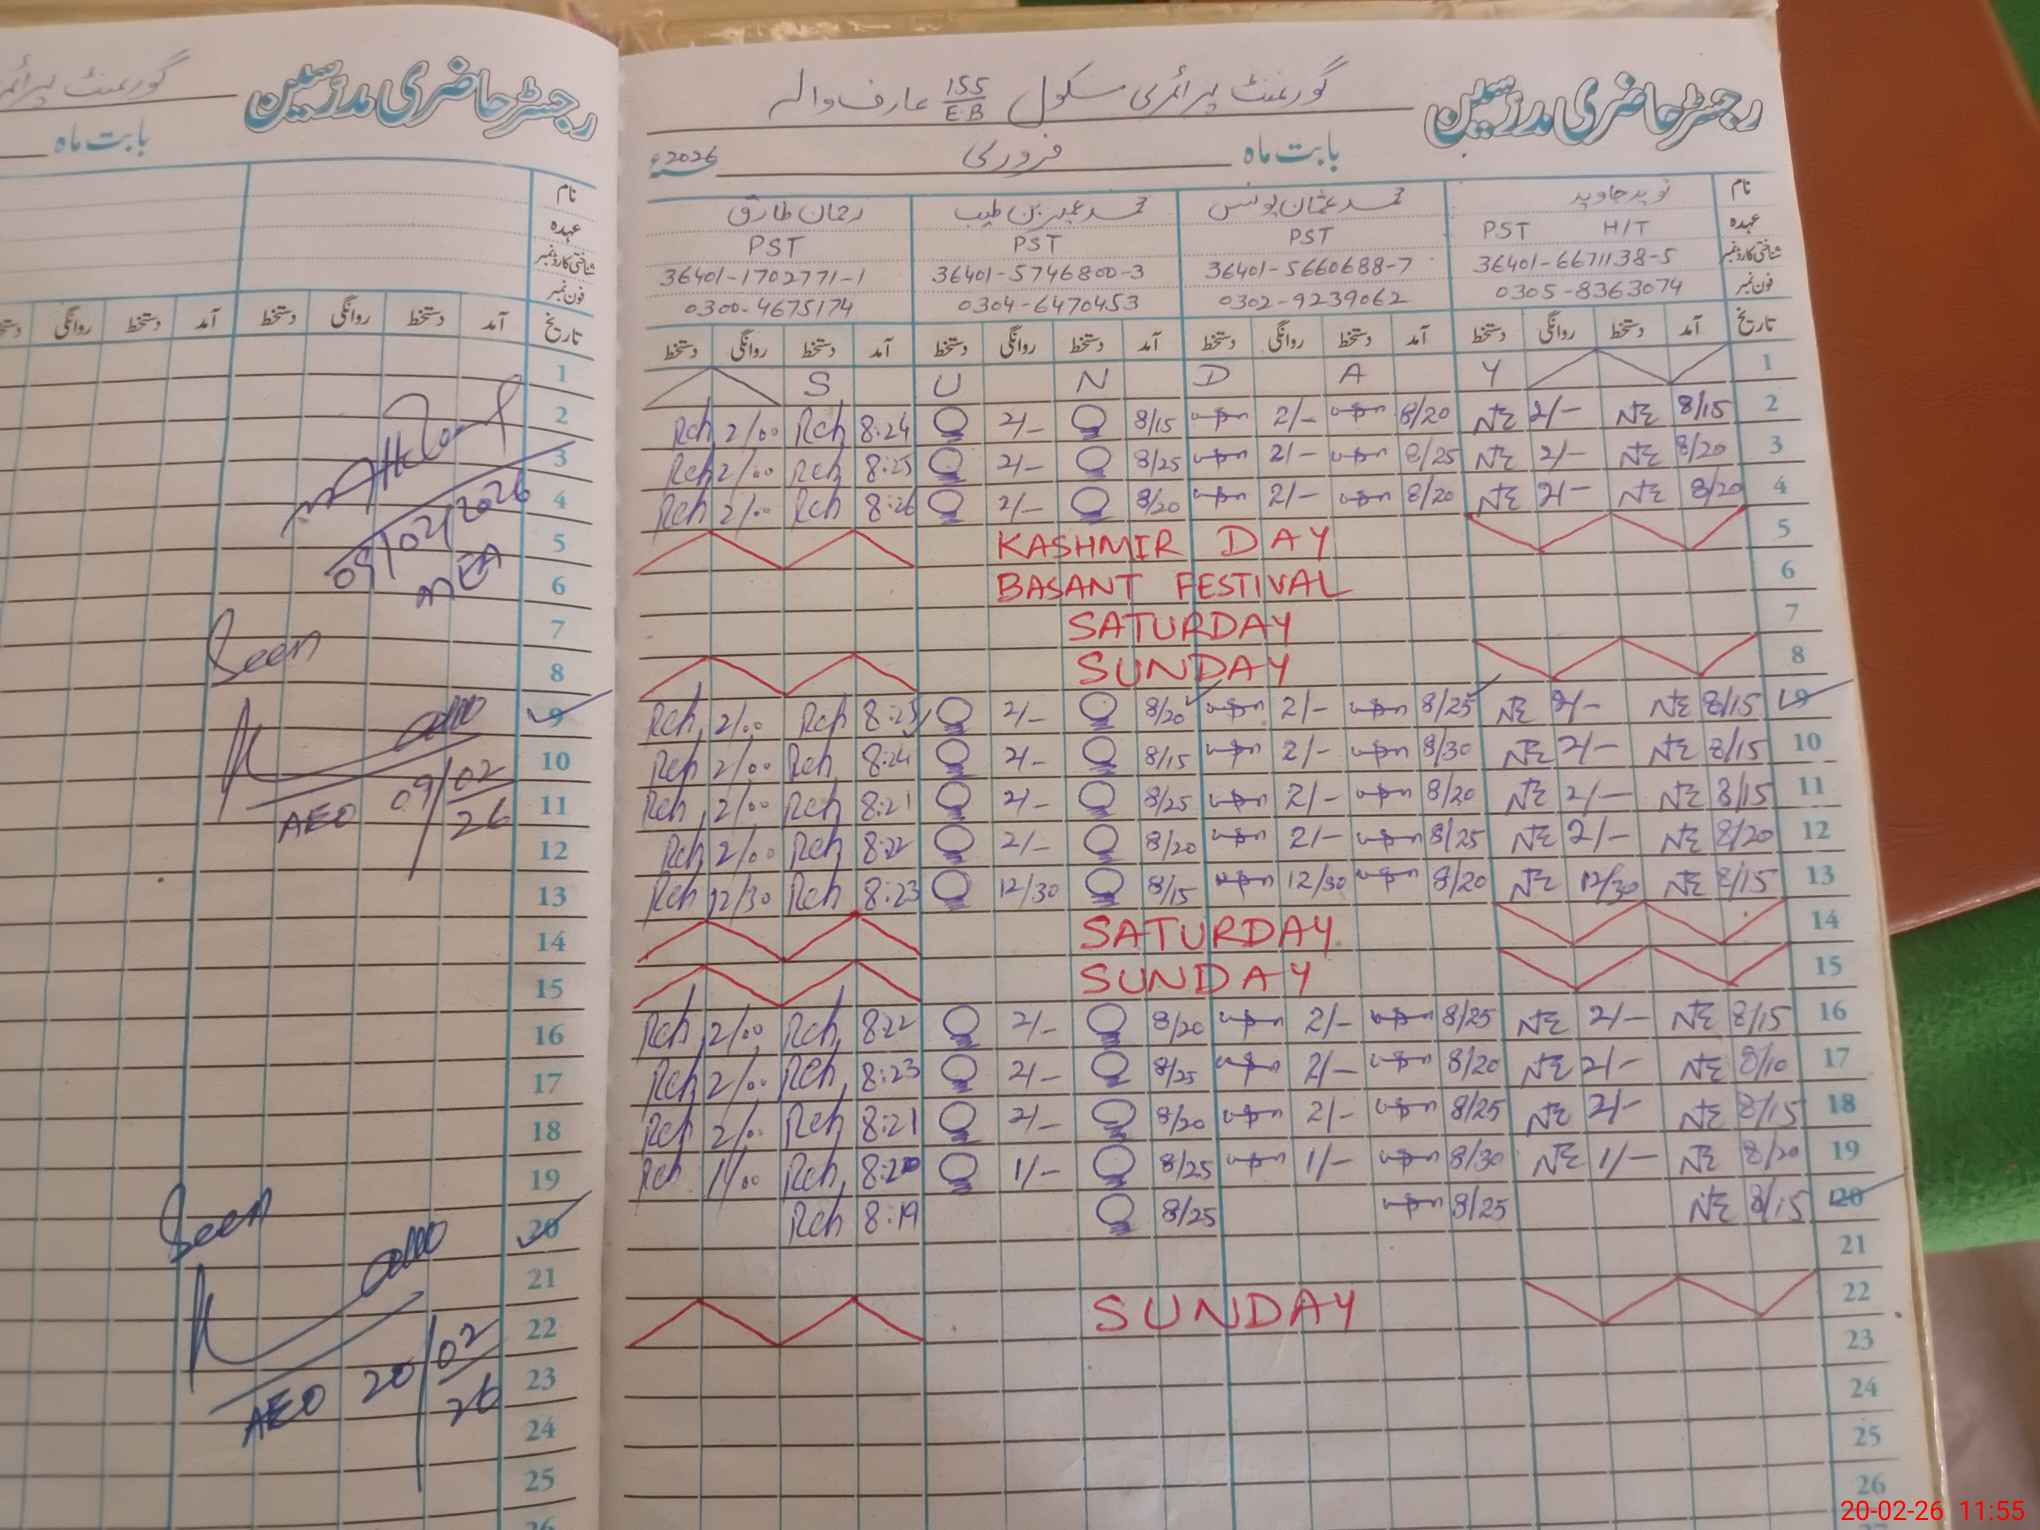 رجسٹر حاضری مدرسین
گورنمنٹ پرائمری سکول 155/E.B عارف والہ
بابت ماہ فروری 2026ء
نام نوید جاوید محمد عثمان یونس محمد عمیر بن طیب رحمان طارق
عہدہ PST H/T PST PST PST
شناختی کارڈ نمبر 36401-6671138-5 36401-5660688-7 36401-5746800-3 36401-1702771-1
فون نمبر 0305-8363074 0302-9239062 0304-6470453 0300-4675174
تاریخ آمد دستخط روانگی دستخط آمد دستخط روانگی دستخط آمد دستخط روانگی دستخط آمد دستخط روانگی دستخط
S U N D A Y 1
Rch 2/00 Rch 8:24 2/- 8/15 2/- 8/20 NE 2/- NE 8/15 2
Rch 2/00 Rch 8:25 2/- 8/25 2/- 8/25 NE 2/- NE 8/20 3
Rch 2/00 Rch 8:26 2/- 8/20 2/- 8/20 NE 2/- NE 8/20 4
KASHMIR DAY 5
BASANT FESTIVAL 6
SATURDAY 7
SUNDAY 8
Rch 2/00 Rch 8:25 2/- 8/20 2/- 8/25 NE 2/- NE 8/15 9
Rch 2/00 Rch 8:24 2/- 8/15 2/- 8/30 NE 2/- NE 8/15 10
Rch 2/00 Rch 8:21 2/- 8/25 2/- 8/20 NE 2/- NE 8/15 11
Rch 2/00 Rch 8:22 2/- 8/20 2/- 8/25 NE 2/- NE 8/20 12
Rch 12/30 Rch 8:23 12/30 8/15 12/30 8/20 NE 12/30 NE 8/15 13
SATURDAY 14
SUNDAY 15
Rch 2/00 Rch 8:22 2/- 8/20 2/- 8/25 NE 2/- NE 8/15 16
Rch 2/00 Rch 8:23 2/- 8/25 2/- 8/20 NE 2/- NE 8/10 17
Rch 2/00 Rch 8:21 2/- 8/20 2/- 8/25 NE 2/- NE 8/15 18
Rch 1/00 Rch 8:20 1/- 8/25 1/- 8/30 NE 1/- NE 8/20 19
Rch 8:19 8/25 8/25 NE 8/15 20
21
SUNDAY 22
23
24
25
26
رجسٹر حاضری مدرسین
گورنمنٹ پرائمری
بابت ماہ
نام
عہدہ
شناختی کارڈ نمبر
فون نمبر
تاریخ آمد دستخط روانگی دستخط آمد دستخط روانگی
1
2
3
4
09/02/2026
5
MEA
6
7
Seen
8
9
10
AEO 09/02/26
11
12
13
14
15
16
17
18
19
Seen
20
21
22
AEO 20/02/26
23
24
25
26
20-02-26 11:55